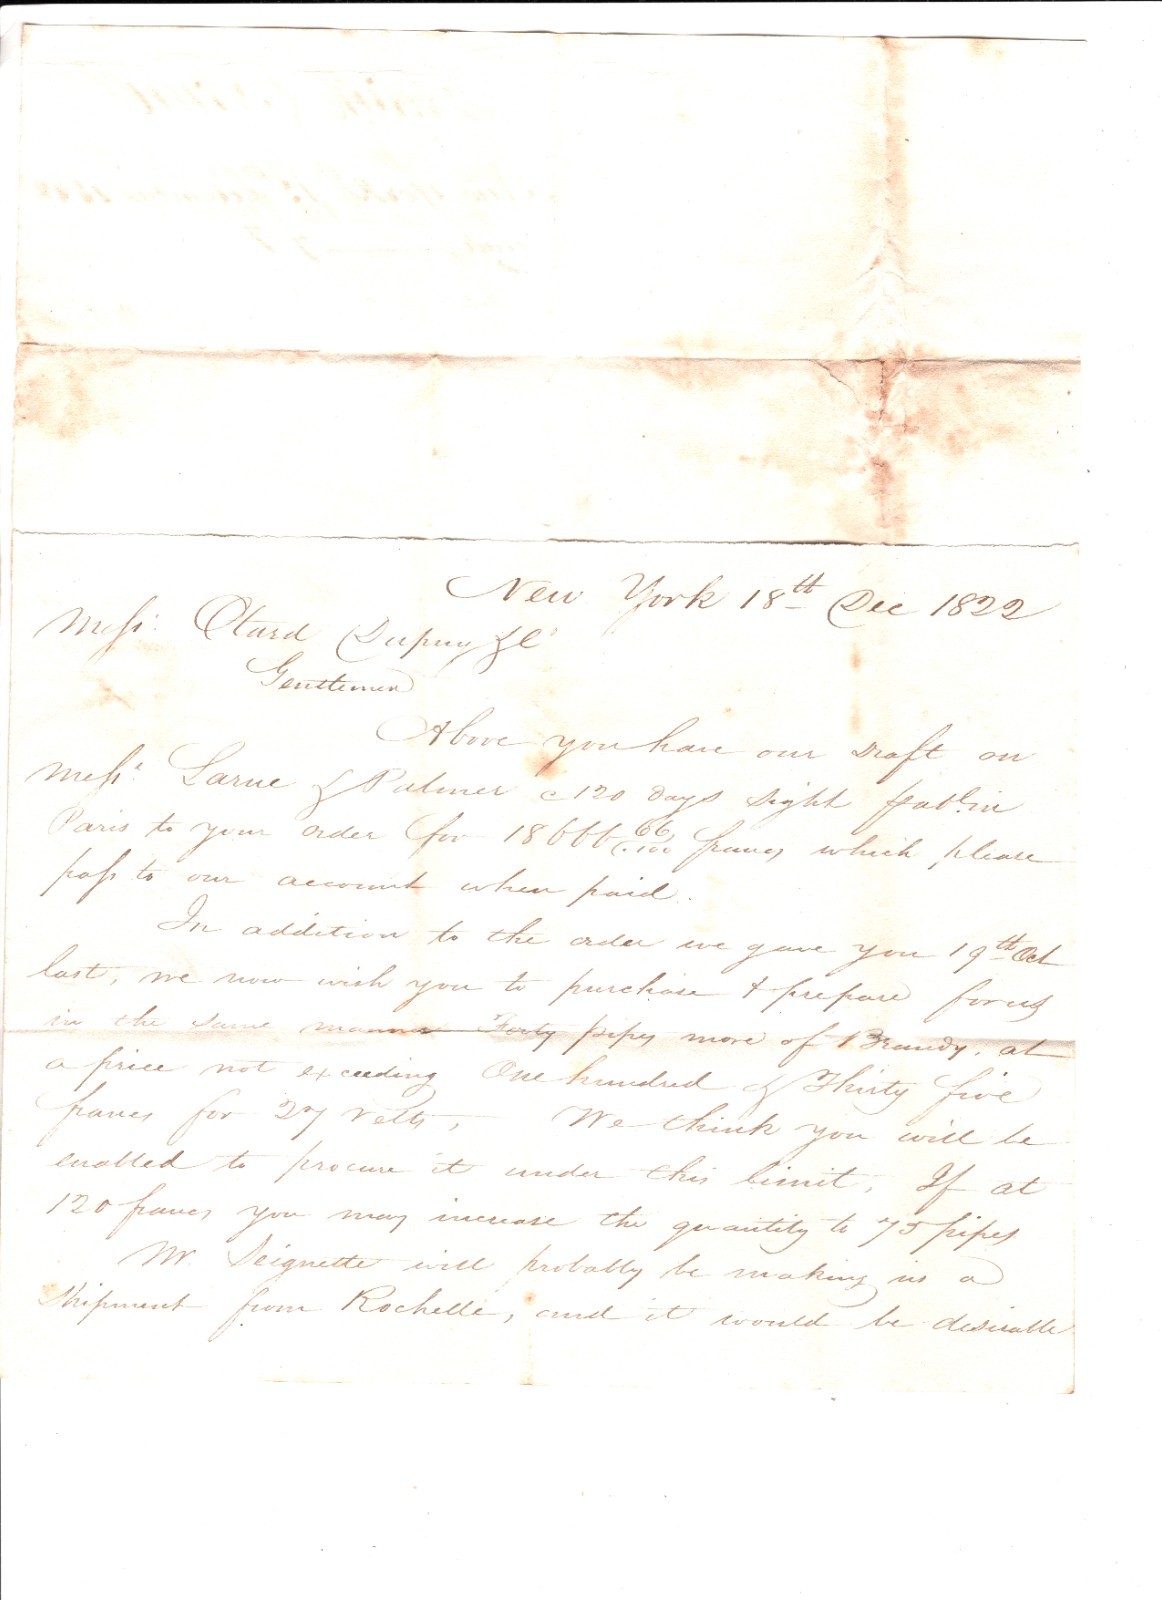 New York 18th Dec 1822
Messr. Otard Dupuy & Co
Gentlemen
Above you have our Draft on
Messr. Larue & Palmer a 120 days sight payble. in
Paris to your order for 18666 66/100 francs which please
pass to our account when paid.
In addition to the order we gave you 19th Oct
last, we now wish you to purchase & prepare for us
in the same manner Forty pipes more of Brandy, at
a price not exceeding One hundred & Thirty five
francs for 27 Velts, We think you will be
enabled to procure it under this limit, If at
120 francs you may increase the quantity to 75 pipes
Mr. Seignette will probably be making us a
Shipment from Rochelle, and it would be desirable